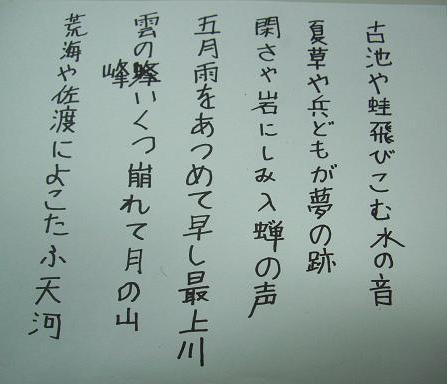 古池や蛙飛びこむ水の音
夏草や兵どもが夢の跡
閑さや岩にしみ入蝉の声
五月雨をあつめて早し最上川
雲の峰いくつ崩れて月の山
荒海や佐渡によこたふ天河